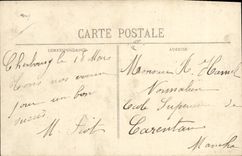 CARTE POSTALE
CORRESPONDANCE
ADRESSE
Cherbourg le 18 Mars
Tous nos vœux
pour un bon
succès
M. Piot
Monsieur R. Hamel
Normalien
Ecole Supérieure de
Carentan
Manche